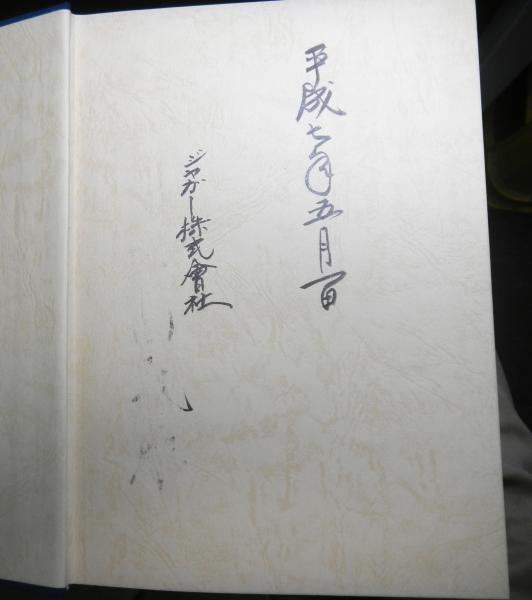 平成七年五月一日
ジャガー株式會社